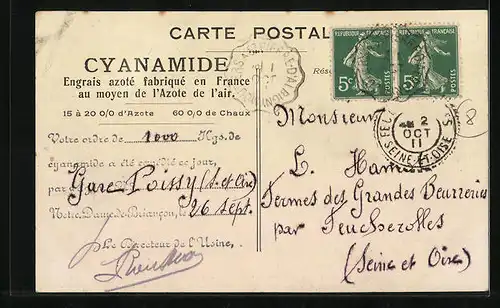 CARTE POSTALE
CYANAMIDE
Engrais azoté fabriqué en France
au moyen de l'Azote de l'air.
15 à 20 0/0 d'Azote 60 0/0 de Chaux
Votre ordre de 1000 Kgs. de
cyanamide a été expédié ce jour,
par
Gare Poissy (S. et Oise)
Notre-Dame-de-Briançon, le 26 Sept.
Le Directeur de l'Usine,
REPUBLIQUE FRANÇAISE
5c
POSTES
REPUBLIQUE FRANÇAISE
5c
POSTES
2
OCT
11
SEINE-ET-OISE
8
Monsieur
L.
Fermes des Grandes Beurreries
par Feucherolles
(Seine et Oise)